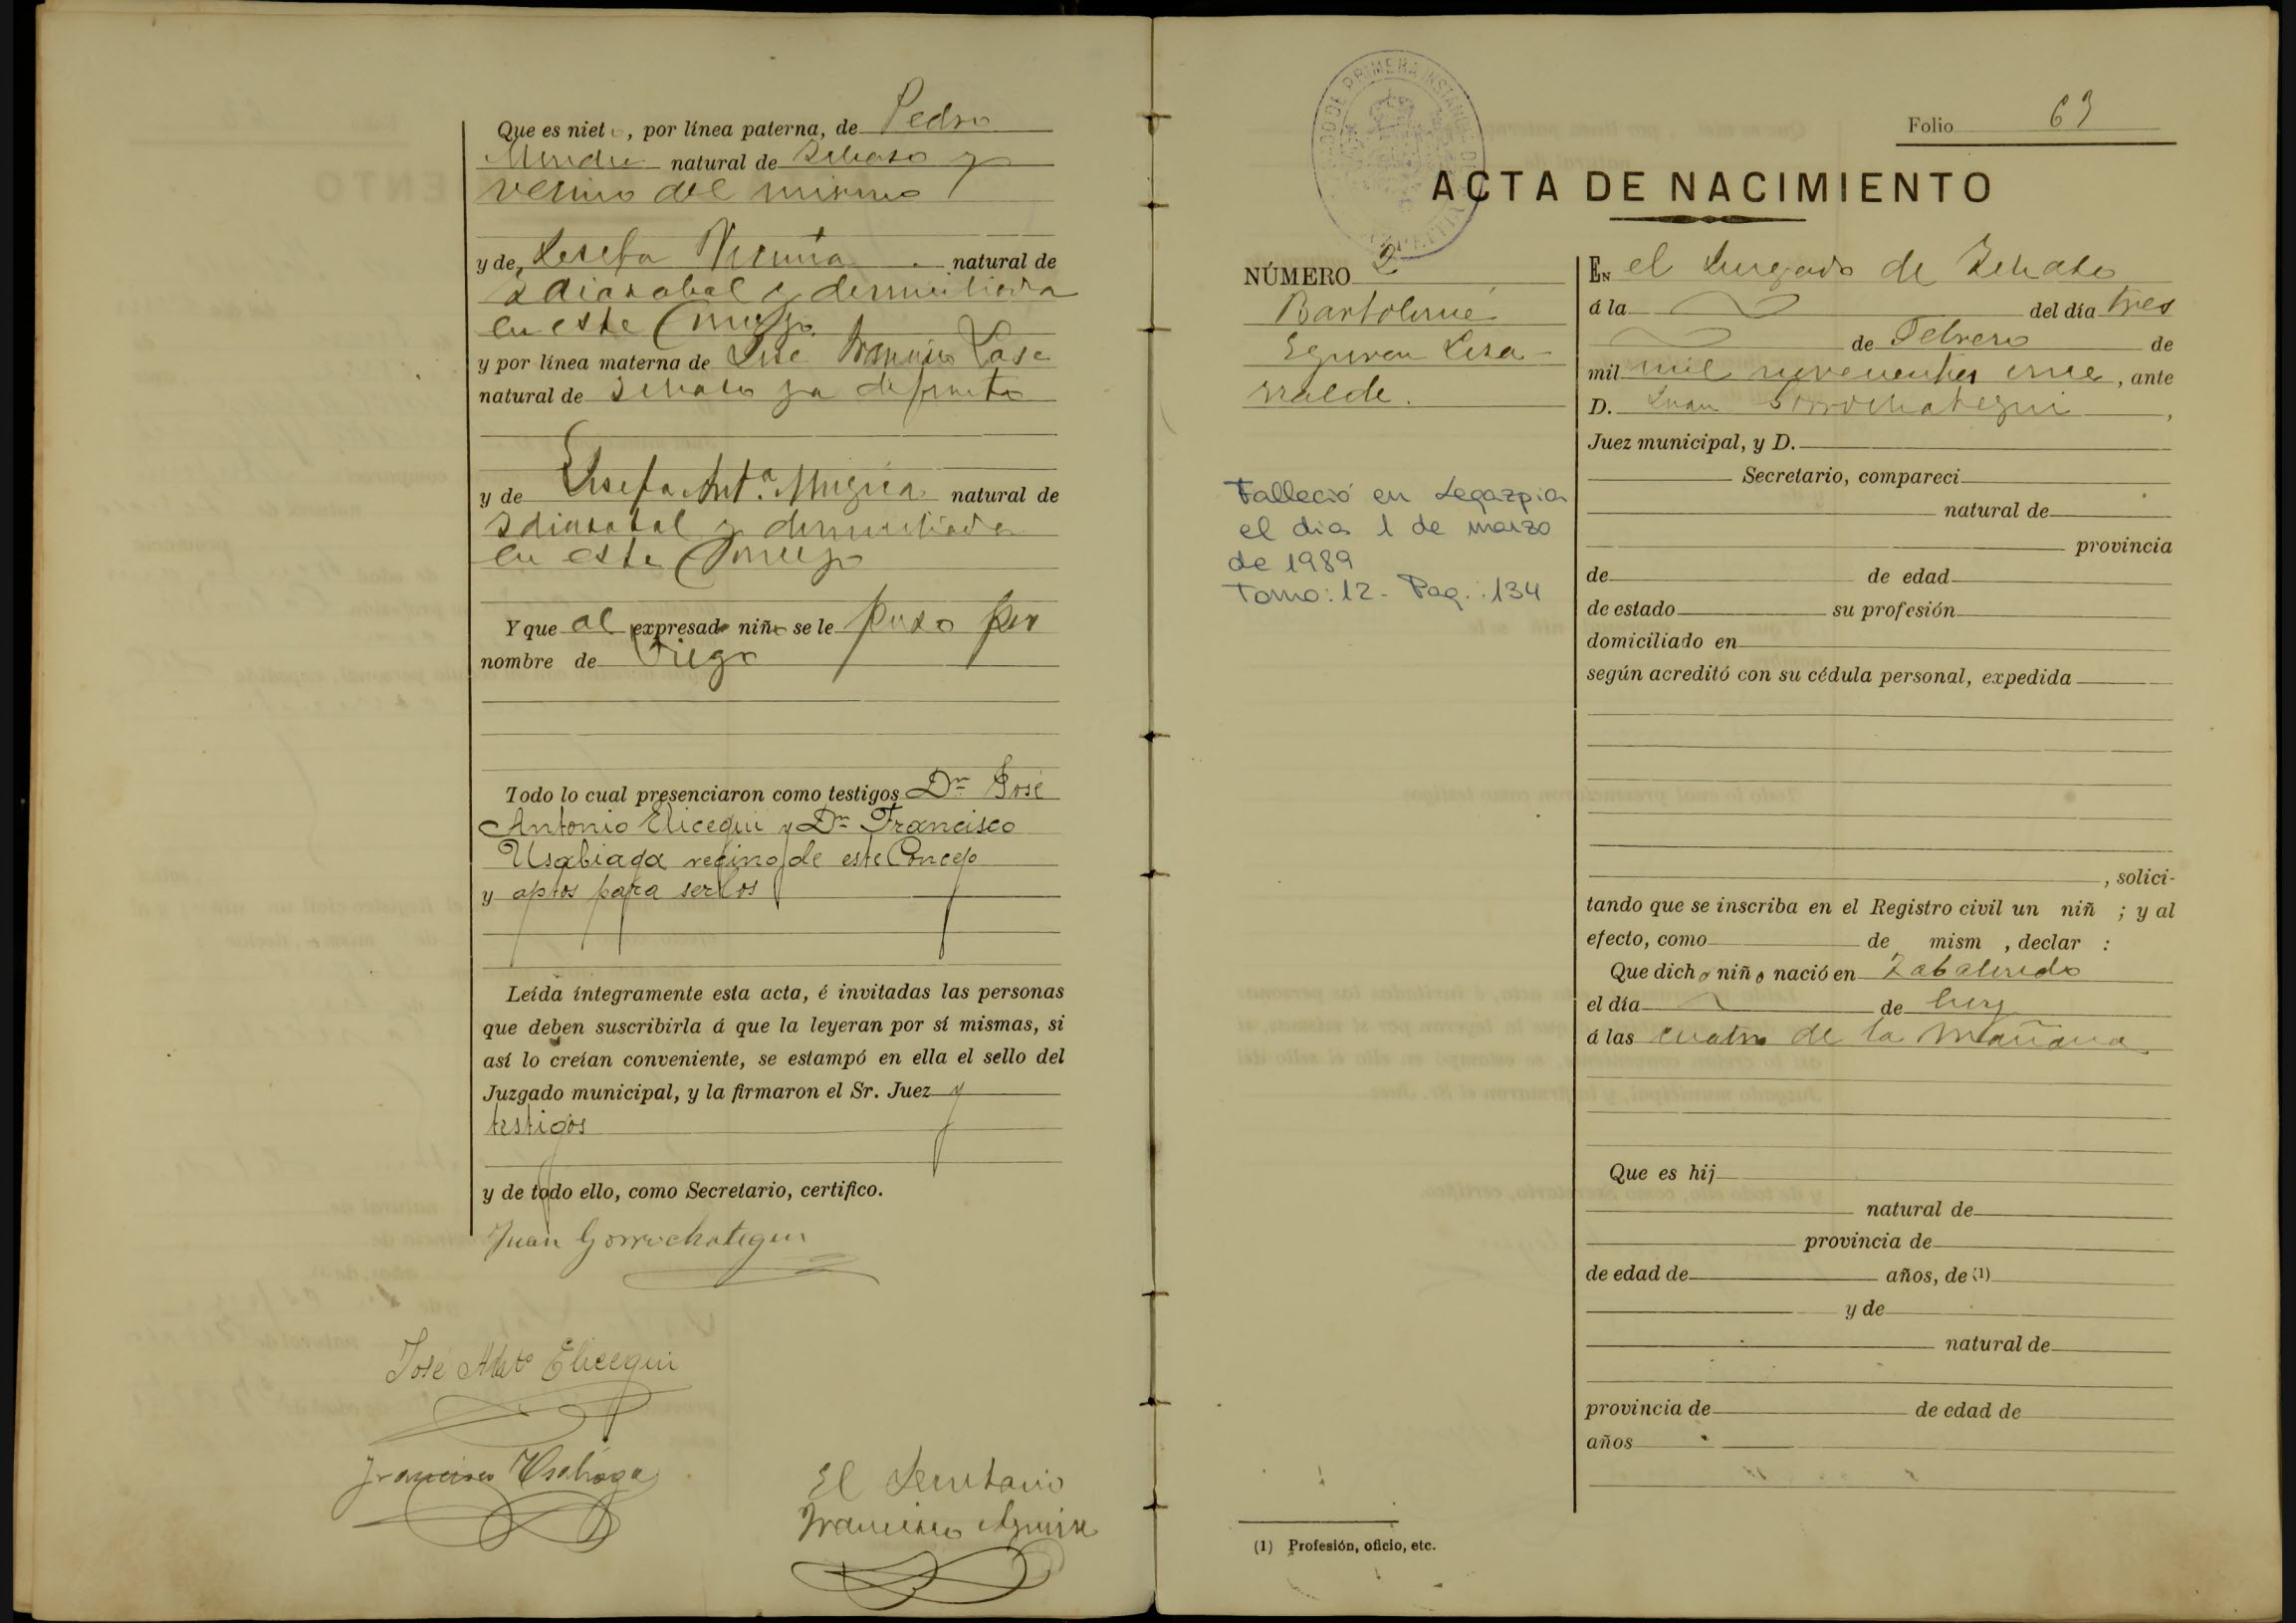 Que es nieto, por línea paterna, de Pedro
natural de y
vecino del mismo
y de, Josefa Vicuña natural de
Idiazabal y domiciliada
en este Concejo
y por línea materna de José Francisco Lasa
natural de ya difunto
y de Josefa Antª Mugica natural de
Idiazabal y domiciliada
en este Concejo
Y que al expresado niño se le puso por
nombre de Diego
Todo lo cual presenciaron como testigos Dn José
Antonio Elicegui y Dn Francisco
Usabiaga vecino de este Concejo
y aptos para serlos
Leída íntegramente esta acta, é invitadas las personas
que deben suscribirla á que la leyeran por sí mismas, si
así lo creían conveniente, se estampó en ella el sello del
Juzgado municipal, y la firmaron el Sr. Juez y
testigos
y de todo ello, como Secretario, certifico.
Juan Gorrochategui
José Anto Elicegui
Francisco Usabiaga
El Secretario
Francisco Aguirre
JUZGADO DE PRIMERA INSTANCIA DE
Folio 63
ACTA DE NACIMIENTO
NÚMERO 2
Bartolomé
Eguren Liza-
rralde.
Falleció en Legazpia
el dia 1 de marzo
de 1989
Tomo: 12 - Pag.: 134
EN el Juzgado de
á la del día tres
de Febrero de
mil mil novecientos once, ante
D. Juan Gorrochategui,
Juez municipal, y D.
Secretario, compareci
natural de
provincia
de de edad
de estado su profesión
domiciliado en
según acreditó con su cédula personal, expedida
, solici-
tando que se inscriba en el Registro civil un niñ ; y al
efecto, como de mism , declar :
Que dicho niño nació en
el día de hoy
á las cuatro de la mañana
Que es hij
natural de
provincia de
de edad de años, de (1)
y de
natural de
provincia de de edad de
años
(1) Profesión, oficio, etc.